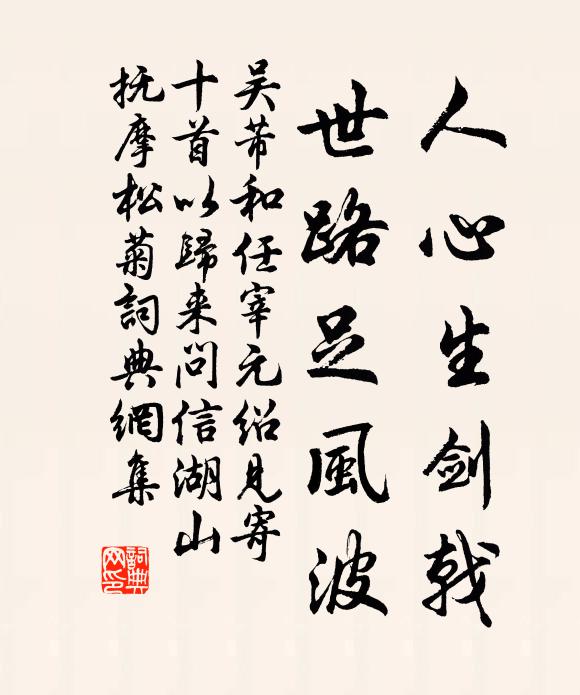 人心生剑戟
世路足風波
吴芾和任宰元绍見寄
十首以歸来問信湖山
抚摩松菊詞典網集
詞典网印